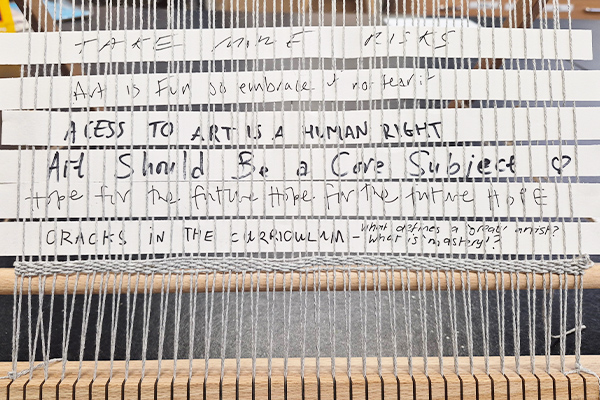 TAKE MORE RISKS
Art is Fun so embrace it not fear it
ACESS TO ART IS A HUMAN RIGHT
Art Should Be a Core Subject ♡
Hope for the future Hope for the future HOPE
CRACKS IN THE CURRICULUM - what defines a 'great' artist?
What is mastery!?